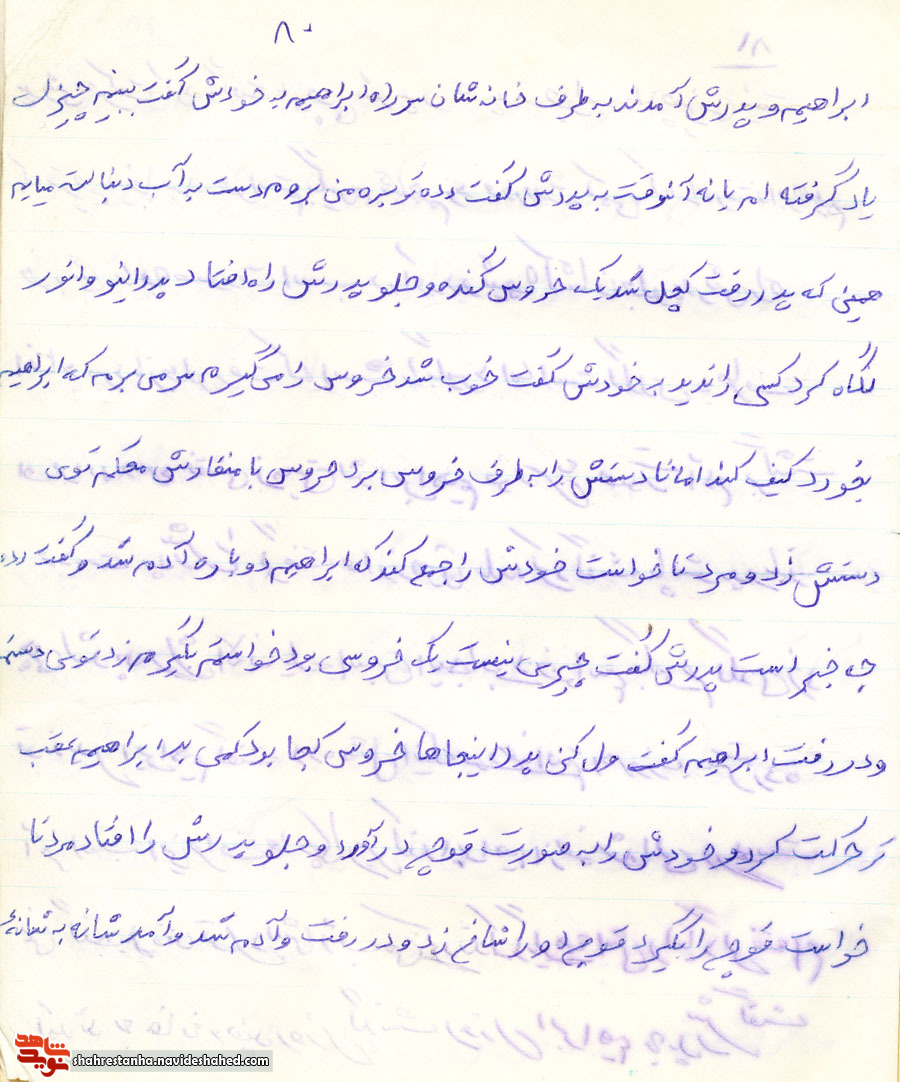 ۸۰
ابراهیم و پدرش آمدند به طرف خانه شان سر راه ابراهیم به خودش گفت ببینم چیزی
یاد گرفته ام یا نه آنوقت به پدرش گفت دده تو بره من بروم دست به آب دنبالت میایم
همینی که پدر رفت کچل شد یک خروس گنده و جلو پدرش راه افتاد پدر اینو و انور
نگاه کرد کسی را ندید به خودش گفت خوب شد خروس را می گیرم می برم که ابراهیم
بخورد کیف کند اما تا دستش را به طرف خروس برد خروس با منقارش محکم توی
دستش زد و مرد تا خواست خودش را جمع کند که ابراهیم دوباره آدم شد و گفت دده
چی خبر است پدرش گفت چیزی نیست یک خروسی بود خواستم بگیرم زد توی دستم
و در رفت ابراهیم گفت ول کن پدر اینجاها خروس کجا بود کمی بعد ابراهیم عقب
تر حرکت کرد و خودش را به صورت قوچی درآورد و جلو پدرش راه افتاد مرد تا
خواست قوچ را بگیرد قوچ او را شاخ زد و در رفت و آدم شد و آمد شانه به شانهٔ
نوید شاهد
shahrestanha.navideshahed.com